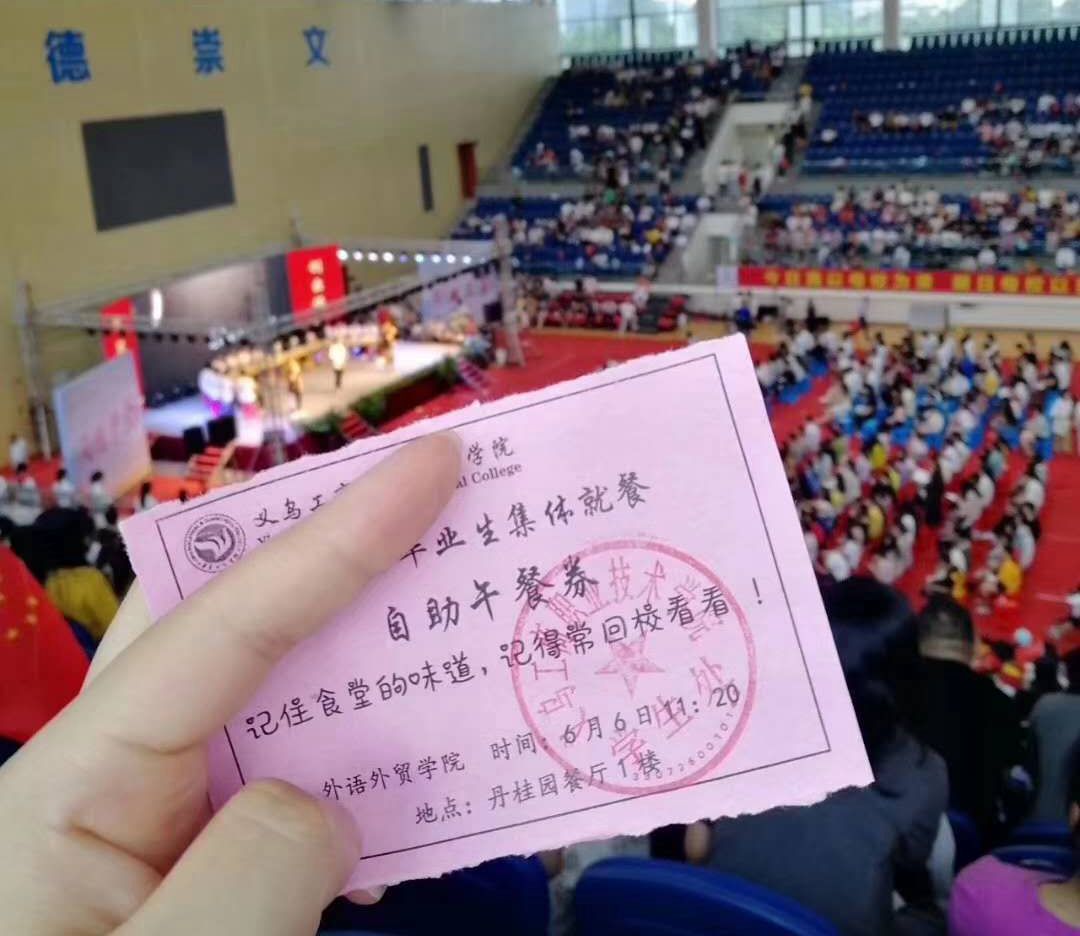 德 崇 文
学院
al College
义乌工
毕业生集体就餐
自助午餐券
记住食堂的味道，记得常回校看看！
外语外贸学院 时间：6月6日11：20
地点：丹桂园餐厅1楼
职业技术
学生处